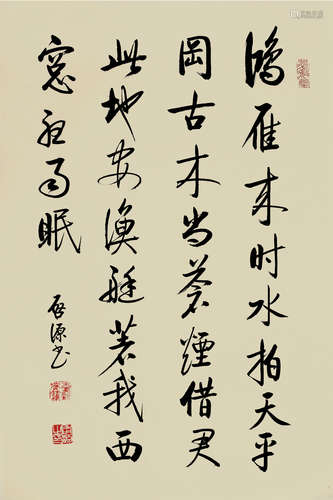 鸿雁来时水拍天平
冈古木尚苍烟借君
此地安渔艇著我西
窗听雨眠
启源书